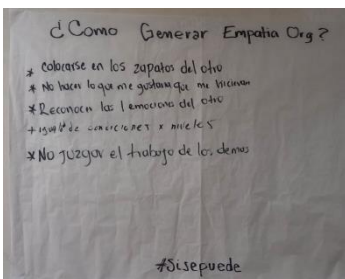 ¿Como Generar Empatia Org?
* Colocarse en los zapatos del otro
* No hacer lo que me gustaria que me hicieran
* Reconocer las emociones del otro
de condiciones x niveles
* No juzgar el trabajo de los demas
#Sisepuede